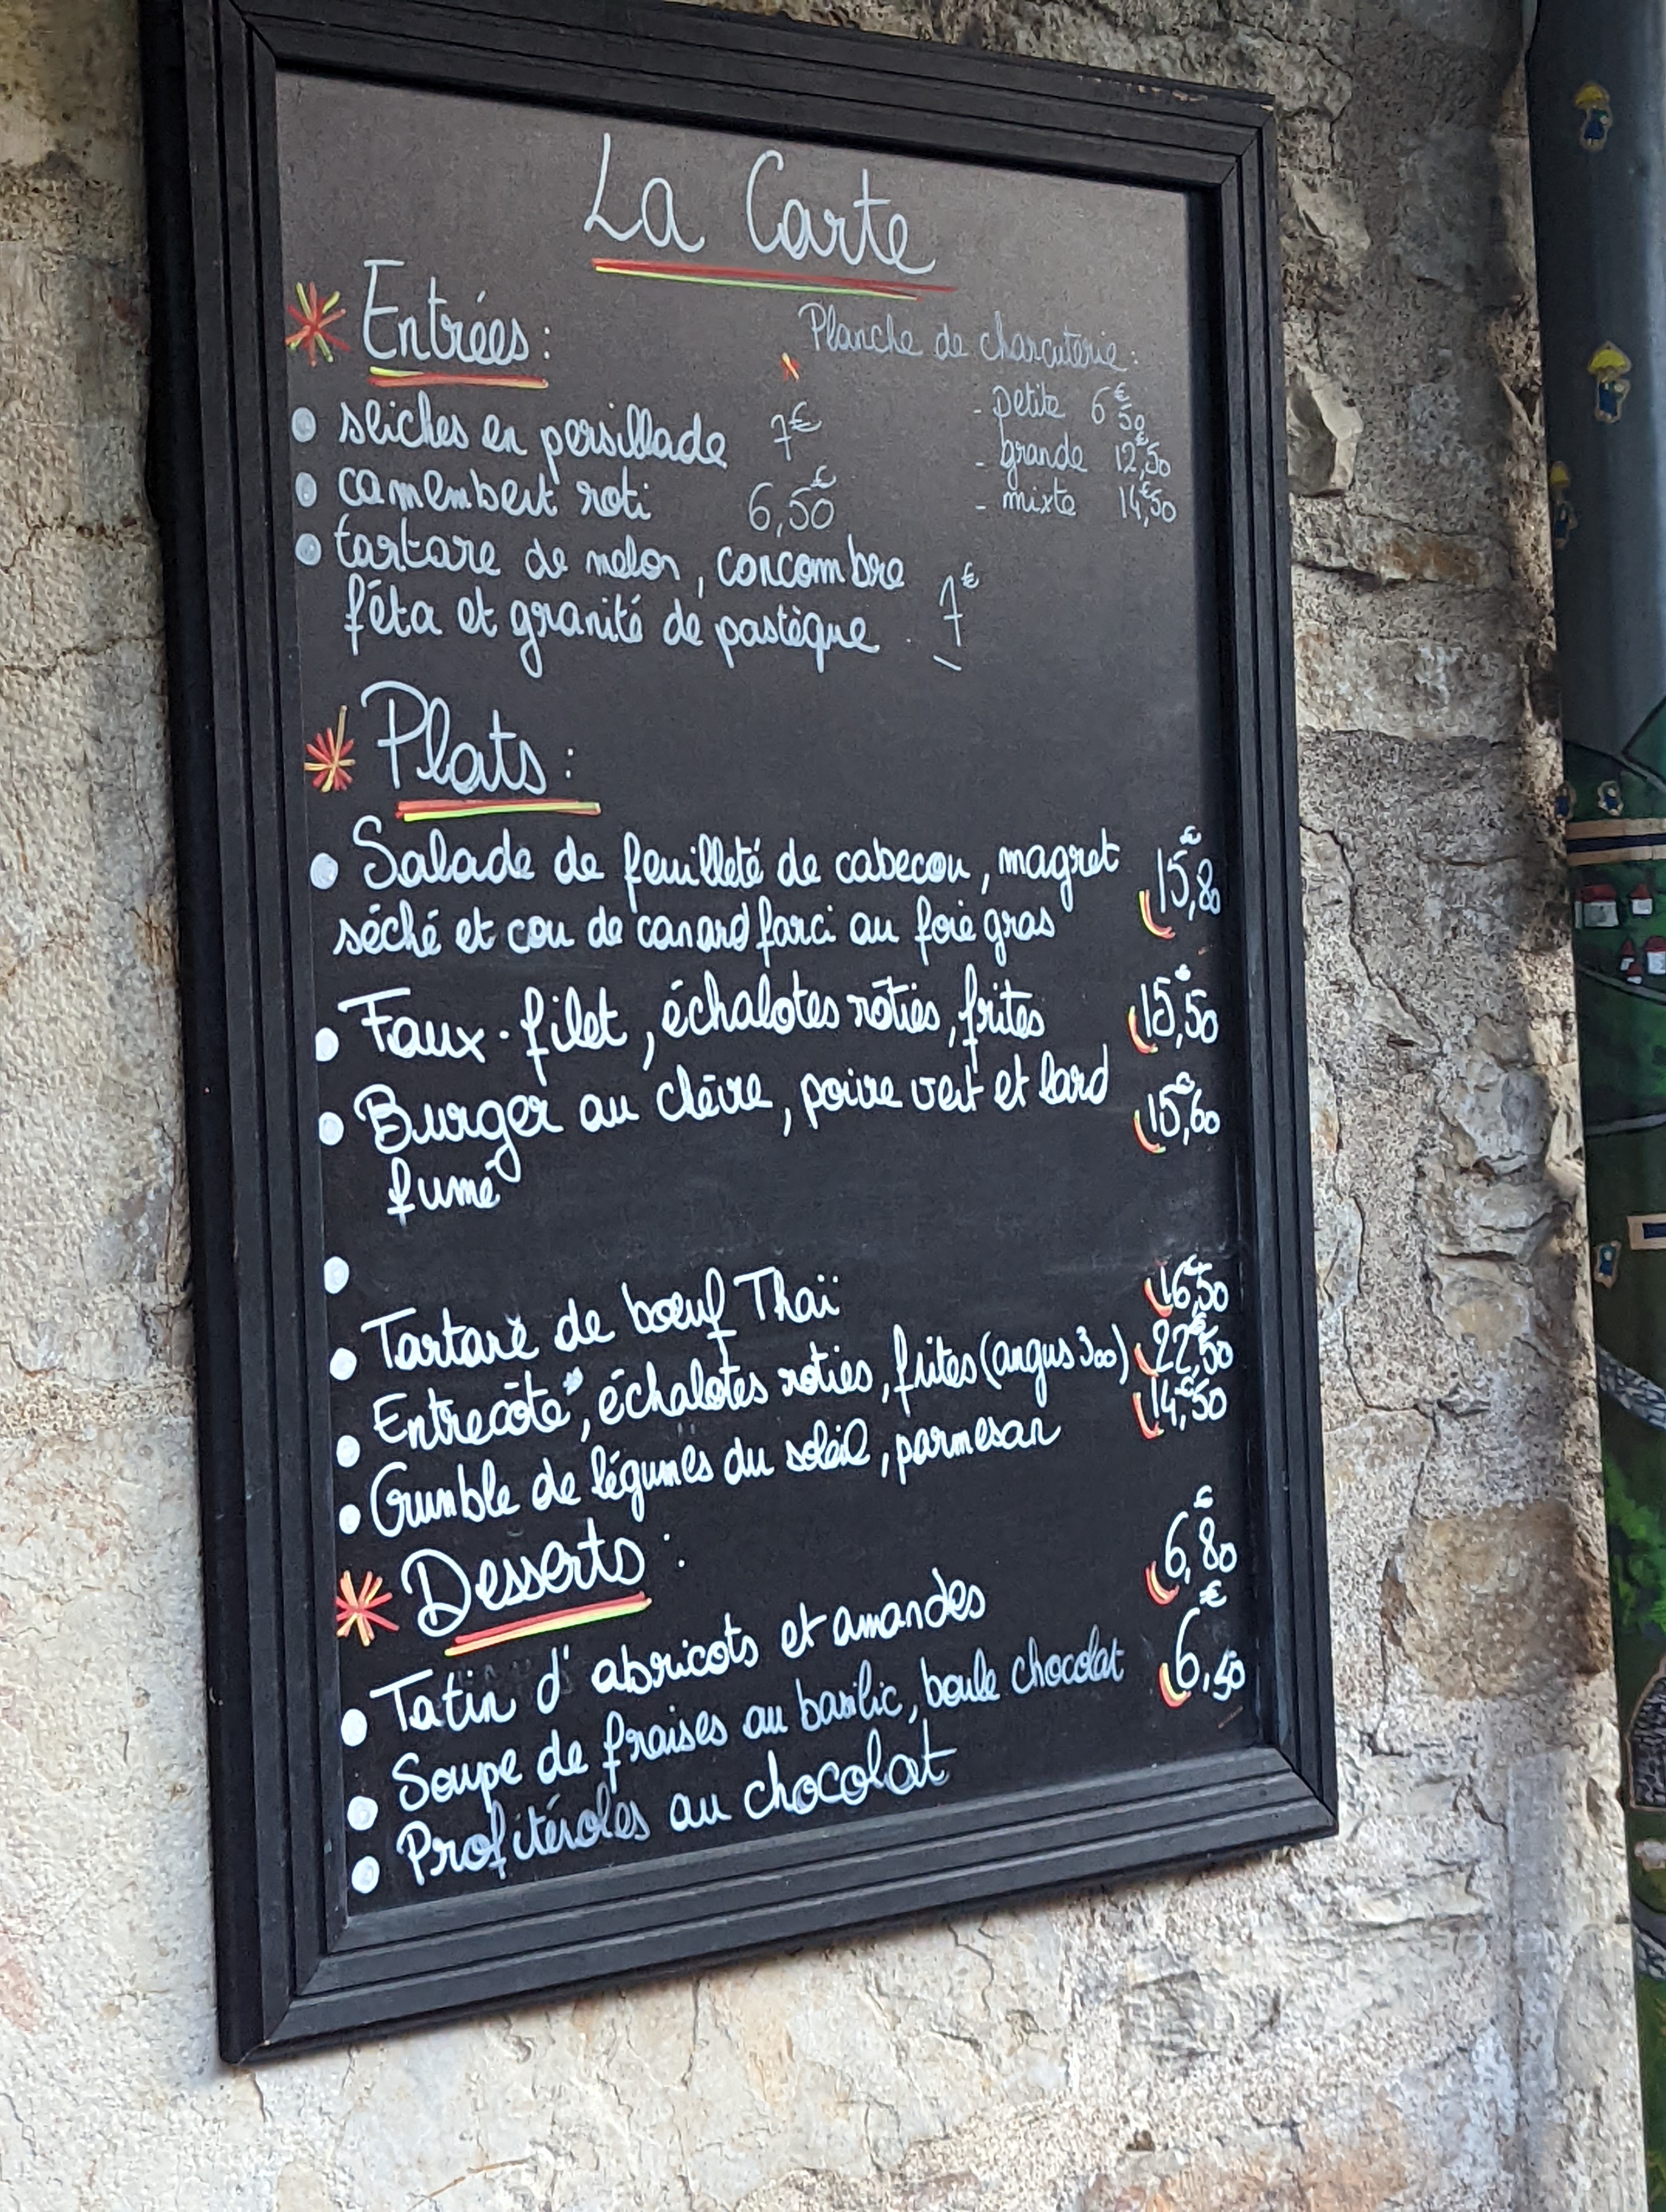 La Carte
Entrées :
seiches en persillade 7€
camembert roti 6,50€
tartare de melon, concombre
féta et granité de pastèque 7€
Planche de charcuterie :
- petite 6€50
- grande 12€,50
- mixte 14€,50
Plats :
Salade de feuilleté de cabecou, magret 15€,80
séché et cou de canard farci au foie gras
Faux-filet, échalotes rôties, frites 15€,50
Burger au chèvre, poivre vert et lard 15€,60
fumé
Tartare de bœuf Thaï 16€,50
Entrecôte, échalotes roties, frites (angus 300) 22€,50
Crumble de légumes du soleil, parmesan 14€,50
Desserts :
Tatin d'abricots et amandes 6€,80
Soupe de fraises au basilic, boule chocolat 6€,50
Profitéroles au chocolat